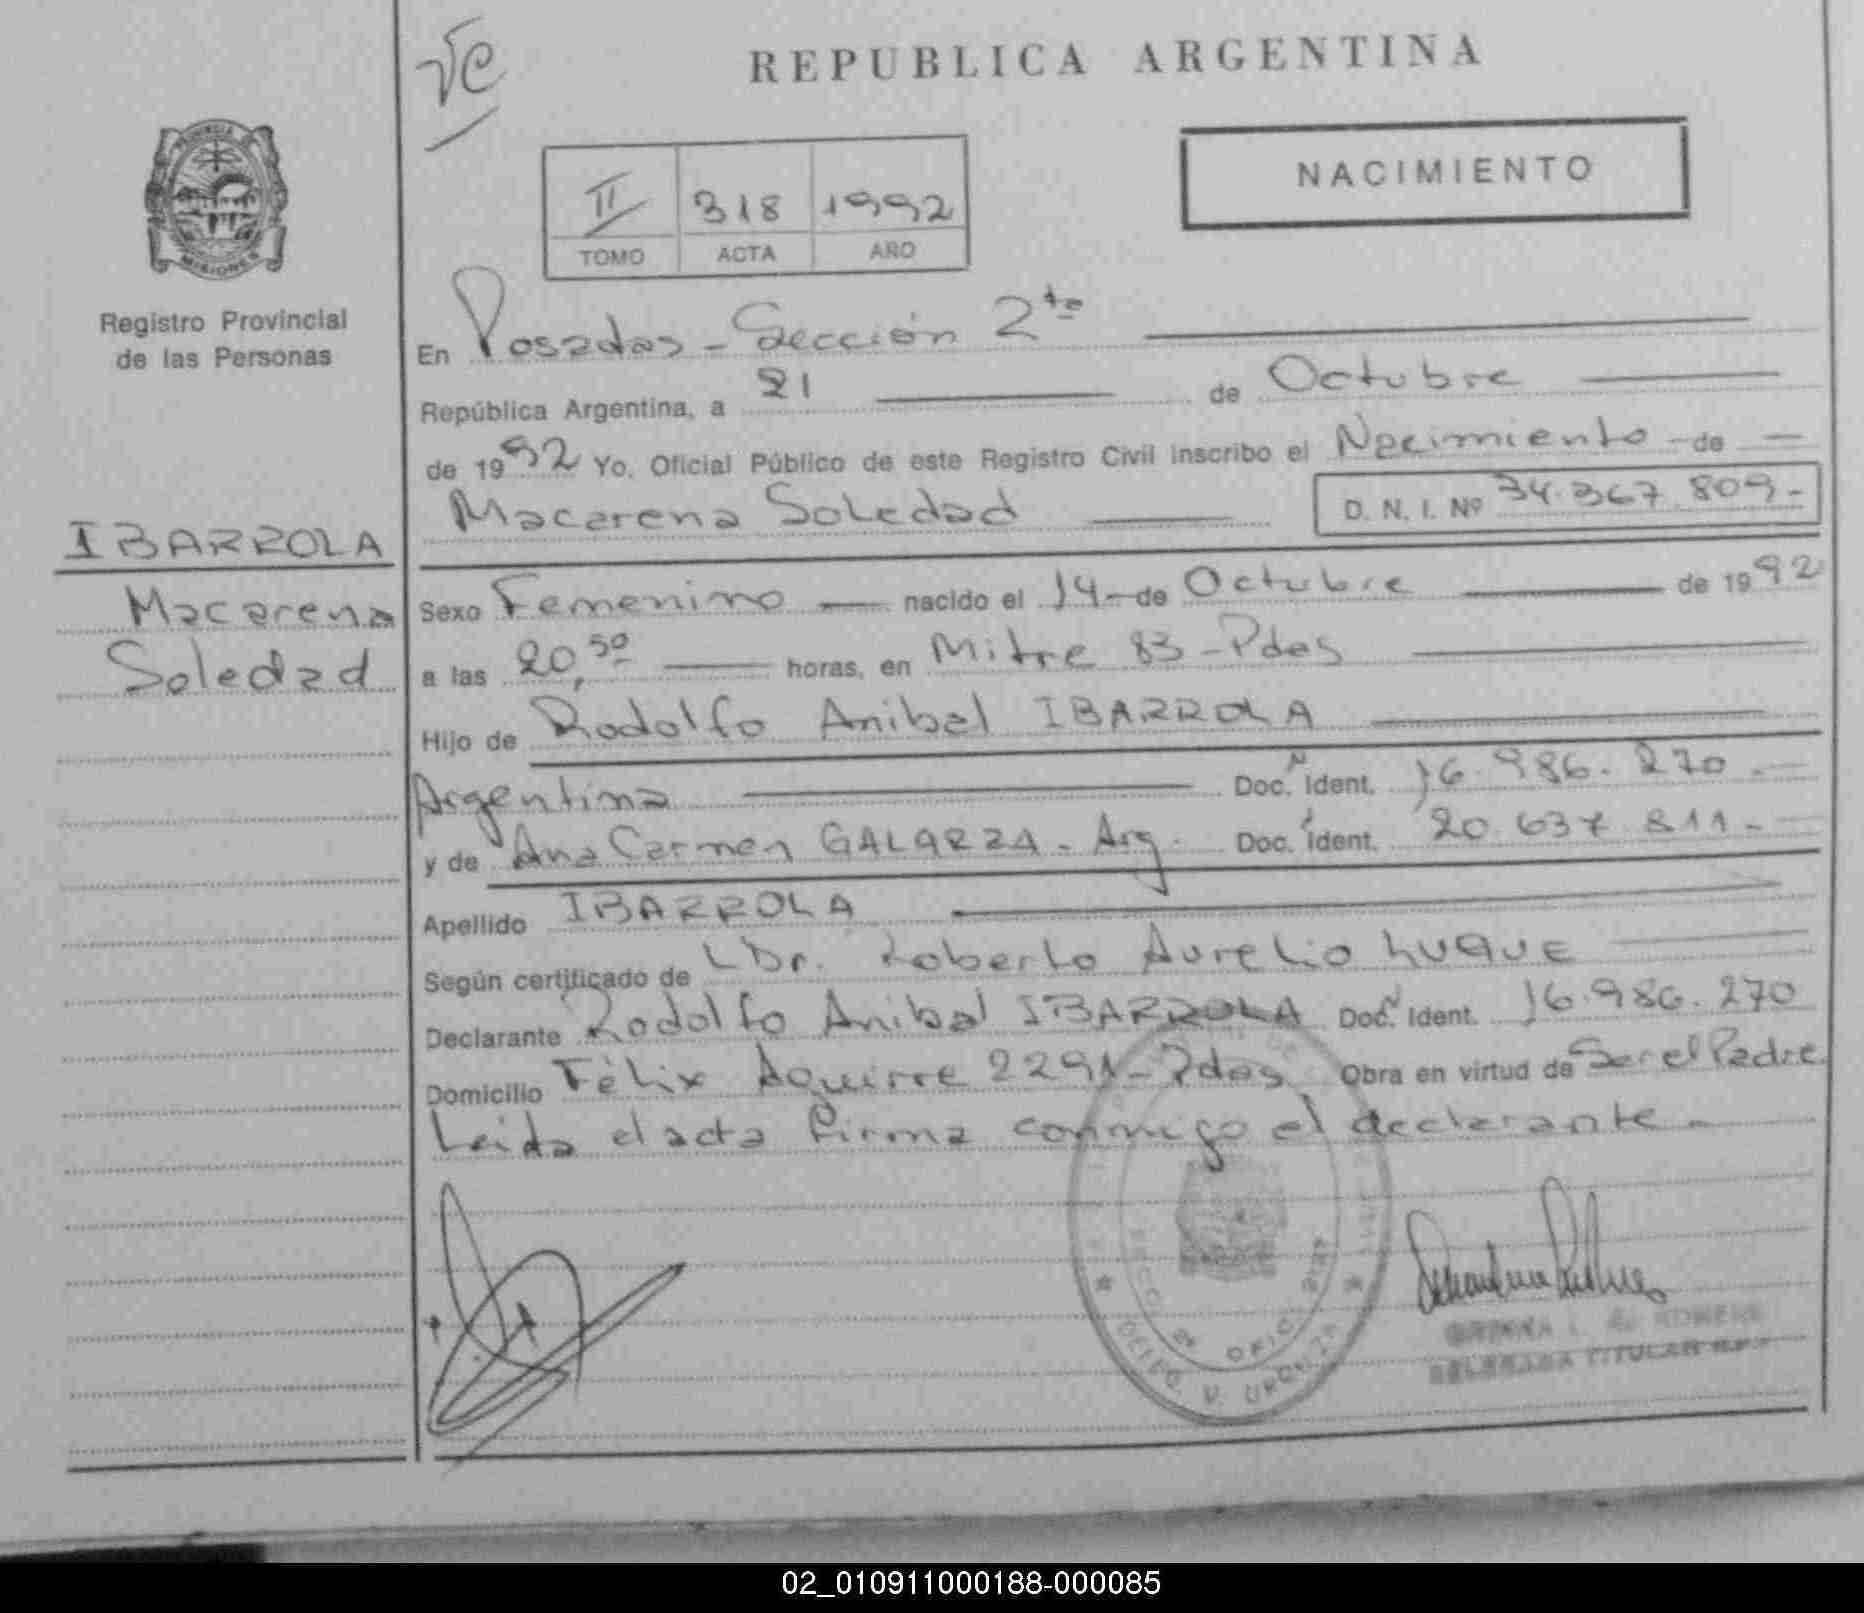 REPUBLICA ARGENTINA
NACIMIENTO
II 318 1992
TOMO ACTA AÑO
PROVINCIA
MISIONES
Registro Provincial
de las Personas
IBARROLA
Macarena
Soledad
En Posadas - Sección 2da
República Argentina, a 21 de Octubre
de 1992 Yo, Oficial Público de este Registro Civil inscribo el Nacimiento de
Macarena Soledad D. N. I. Nº 34.367.809-
Sexo Femenino nacido el 14 de Octubre de 1992
a las 20,50 horas, en Mitre 83 - Pdas
Hijo de Rodolfo Anibal IBARROLA
Argentina Doc. Ident. 16.986.270.-
y de Ana Carmen GALARZA - Arg. Doc. Ident. 20.637.811-
Apellido IBARROLA
Según certificado de Dr. Roberto Aurelio LUQUE
Declarante Rodolfo Anibal IBARROLA Doc. Ident. 16.986.270
Domicilio Félix Aguirre 2291 - Pdas Obra en virtud de Ser el Padre
Leida el acta firma conmigo el declarante -
OFIC.
DELEGADA TITULAR
02_010911000188-000085